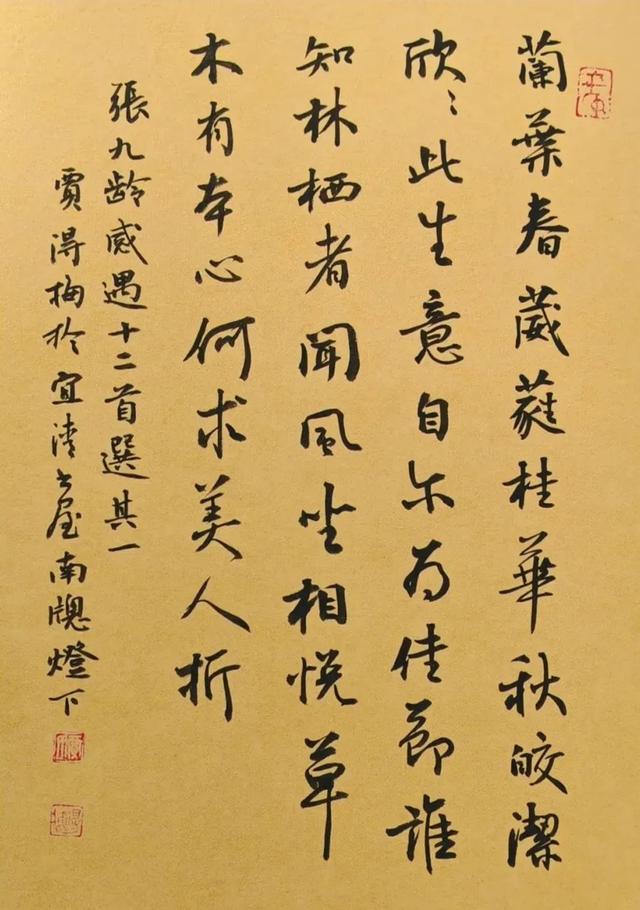 蘭葉春葳蕤桂華秋皎潔
欣〻此生意自尔为佳節誰
知林栖者聞風坐相悦草
木有本心何求美人折
張九龄感遇十二首選其一
賈得梅於宜清書屋南牕燈下